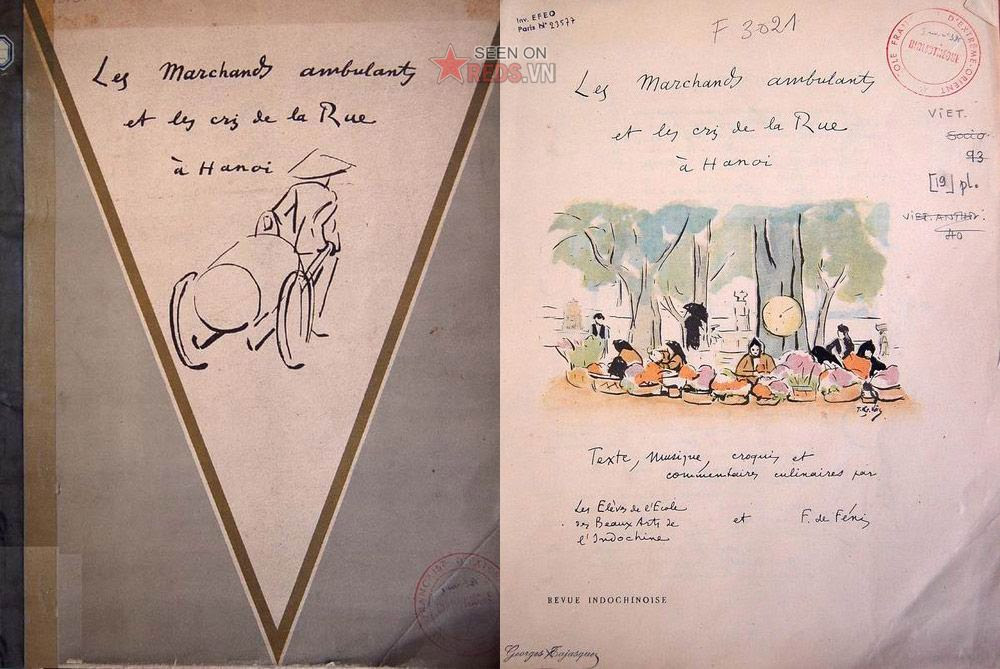 Les Marchands ambulants
et les cris de la Rue
à Hanoi
SEEN ON
REDS.VN
Inv. EFEO
Paris N° 23577
F 3021
ECOLE FRANÇAISE D'EXTRÊME-ORIENT
Les Marchands ambulants
et les cris de la Rue
à Hanoi
VIET.
Socio
93
[19] pl.
VIET.
Texte, Musique, croquis et
commentaires culinaires par
Les Elèves de l'Ecole
des Beaux Arts de
l'Indochine
et F. de Fénis
REVUE INDOCHINOISE
Georges